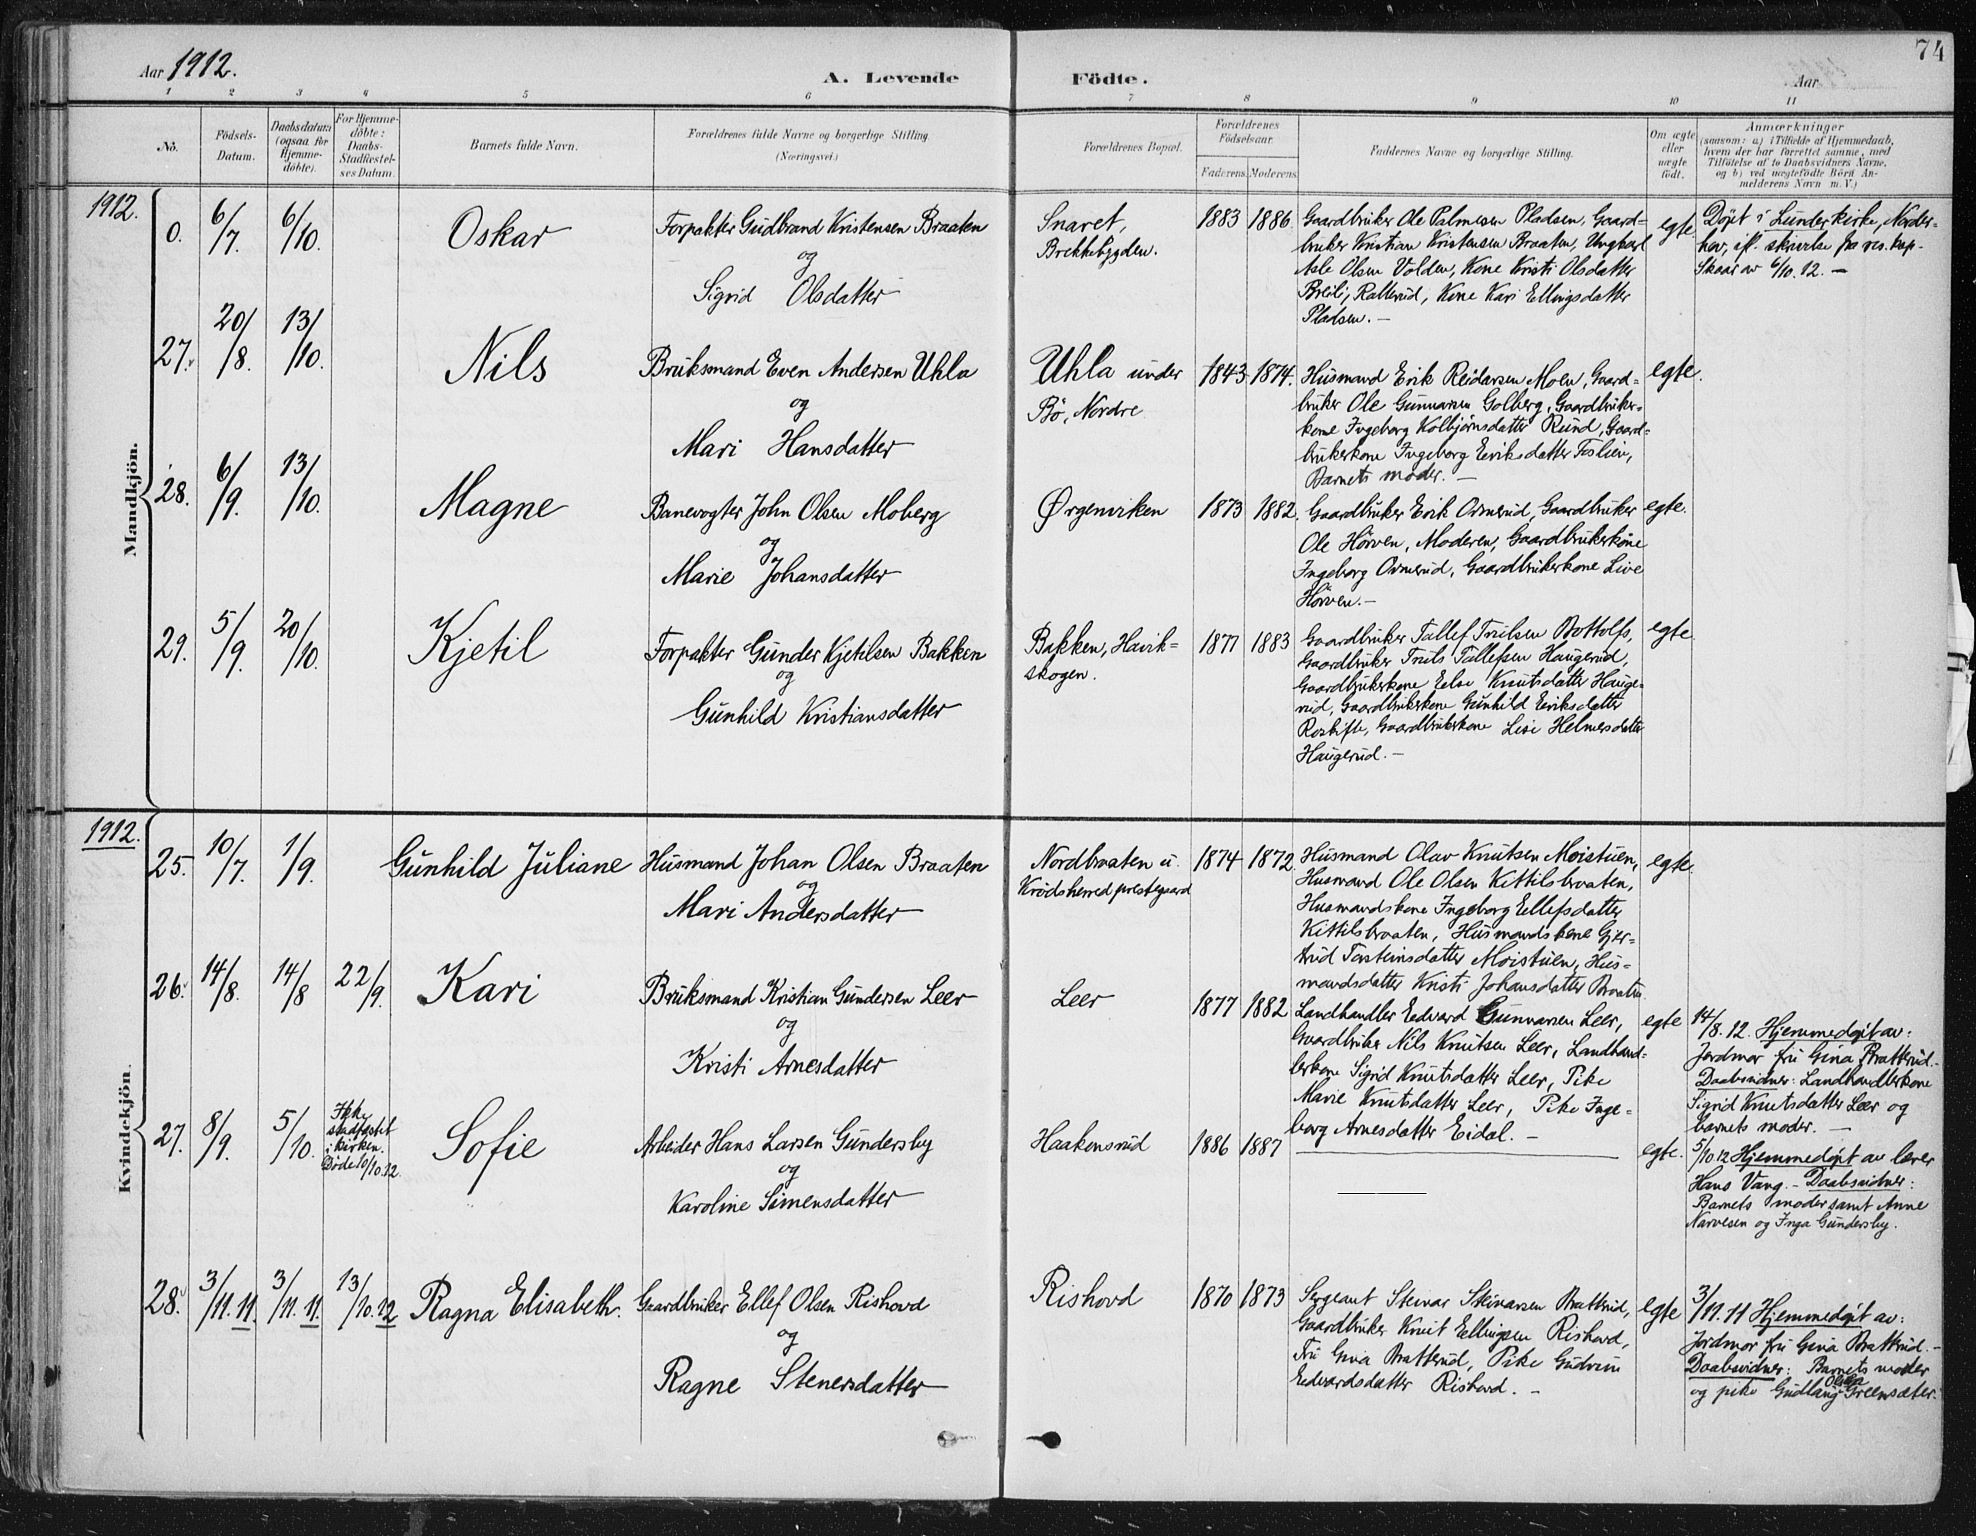 74
Aar 1912.
A. Levende Födte.
Aar
1 2 3 4 5 6 7 8 9 10 11
No.
Födsels-
Datum.
Daabsdatum
(ogsaa for
Hjemme-
döbte).
For Hjemme-
döbte:
Daabs-
Stadfæstel-
ses Datum.
Barnets fulde Navn.
Forældrenes fulde Navne og borgerlige Stilling.
(Næringsvei.)
Forældrenes Bopæl.
Forældrenes
Födselsaar.
Faderens. Moderens.
Faddernes Navne og borgerlige Stilling.
Om ægte
eller
uægte
født.
Anmærkninger
(saasom: a) i Tilfælde af Hjemmedaab,
hvem der har forrettet samme, med
Tilføielse af to Daabsvidners Navne,
og b) ved uægtefödte Börn An-
melderens Navn m. V.)
Mandkjön.
1912.
0. 6/7. 6/10. Oskar
Forpakter Gudbrand Kristensen Braaten
og
Sigrid Olsdatter
Snaret,
Brekkebygden.
1883 1886.
Gaardbruker Ole Palmesen Pladsen, Gaard-
bruker Kristian Kristensen Braaten, Ungkarl
Asle Olsen Volden, Kone Kristi Olsdatter
Breili, Rallerud, Kone Kari Ellingsdatter
Pladsen. -
egte
Døpt i Lunder kirke, Norder-
hov, ifl. skrivelse fra res. kap.
Skaar av 6/10. 12. -
27. 20/8. 13/10. Nils
Bruksmand Even Andersen Uhla
og
Mari Hansdatter
Uhla under
Bø, Nordre
1843 1874.
Husmand Erik Reidarsen Moen, Gaard-
bruker Ole Gunnarsen Golberg, Gaardbruker-
kone Ingeborg Kolbjørnsdatter Rund, Gaard-
brukerkone Ingeborg Eriksdatter Foslien,
Barnets moder. -
egte.
28. 6/9. 13/10. Magne
Banevogter John Olsen Moberg
og
Marie Johansdatter
Ørgenviken
1873 1882.
Gaardbruker Erik Ovmerud, Gaardbruker
Ole Hörven, Moderen, Gaardbrukerkone
Ingeborg Ovmerud, Gaardbrukerkone Live
Hörven. -
egte.
29. 5/9. 20/10. Kjetil
Forpakter Gunder Kjetilsen Bakken
og
Gunhild Kristiansdatter
Bakken, Havik-
skogen.
1877 1883
Gaardbruker Tallef Truilsen Bottolfs,
Gaardbruker Truls Tallefsen Haugerud,
Gaardbrukerkone Else Knutsdatter Hauge-
rud, Gaardbrukerkone Gunhild Eriksdatter
Roskifte, Gaardbrukerkone Lise Helmersdatter
Haugerud. -
egte
Kvindekjön.
1912.
25. 10/7. 1/9. Gunhild Juliane
Husmand Johan Olsen Braaten
og
Mari Andersdatter
Nordbraaten u.
Krödsherred prestegaard
1874 1872.
Husmand Olav Knutsen Moistuen,
Husmand Ole Olsen Kittilsbraaten,
Husmandskone Ingeborg Ellefsdatter
Kittilsbraaten, Husmandskone Gjer-
trud Torsteinsdatter Moistuen, Hus-
mandsdatter Kristi Johansdatter Braaten
egte.
26. 14/8. 14/8 22/9. Kari
Bruksmand Kristian Gundersen Leer
og
Kristi Arnesdatter
Leer
1877 1882
Landhandler Edvard Gunnarsen Leer,
Gaardbruker Nils Knutsen Leer, Landhand-
lerkone Sigrid Knutsdatter Leer, Pike
Marie Knutsdatter Leer, Pike Inge-
borg Arnesdatter Eidal. -
egte
14/8. 12. Hjemmedøpt av:
Jordmor fru Gina Bratterud. -
Daabsvidner: Landhandlerkone
Sigrid Knutsdatter Leer og
barnets moder. -
27. 8/9. 5/10.
Ikke
stadfæstet
i kirken.
Döde 10/10.12.
Sofie
Arbeider Hans Larsen Gundersby
og
Karoline Simensdatter
Haakonsrud
1886 1887
egte.
5/10.12 Hjemmedøpt av lærer
Hans Vang. - Daabsvidner:
Barnets moder samt Anne
Narvesen og Inga Gundersby.
28. 3/11.11. 3/11.11. 13/10.12 Ragna Elisabeth.
Gaardbruker Ellef Olsen Rishovd
og
Ragne Stenersdatter
Rishovd
1870 1873
Sergeant Steinar Steinarsen Bratterud,
Gaardbruker Knut Ellingsen Rishovd,
Fru Gina Bratterud, Pike Gudrun
Edvardsdatter Rishovd. -
egte
3/11.11 Hjemmedøpt av:
Jordmor fru Gina Bratterud. -
Daabsvidner: Barnets moder
og pike Gudlaug Olsen Greensæter.